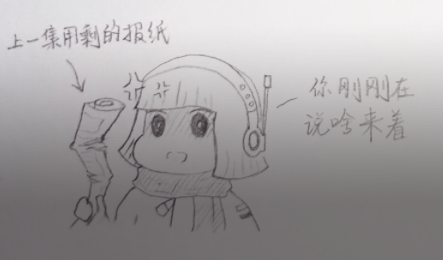 上一集用剩的报纸
你刚刚在
说啥来着